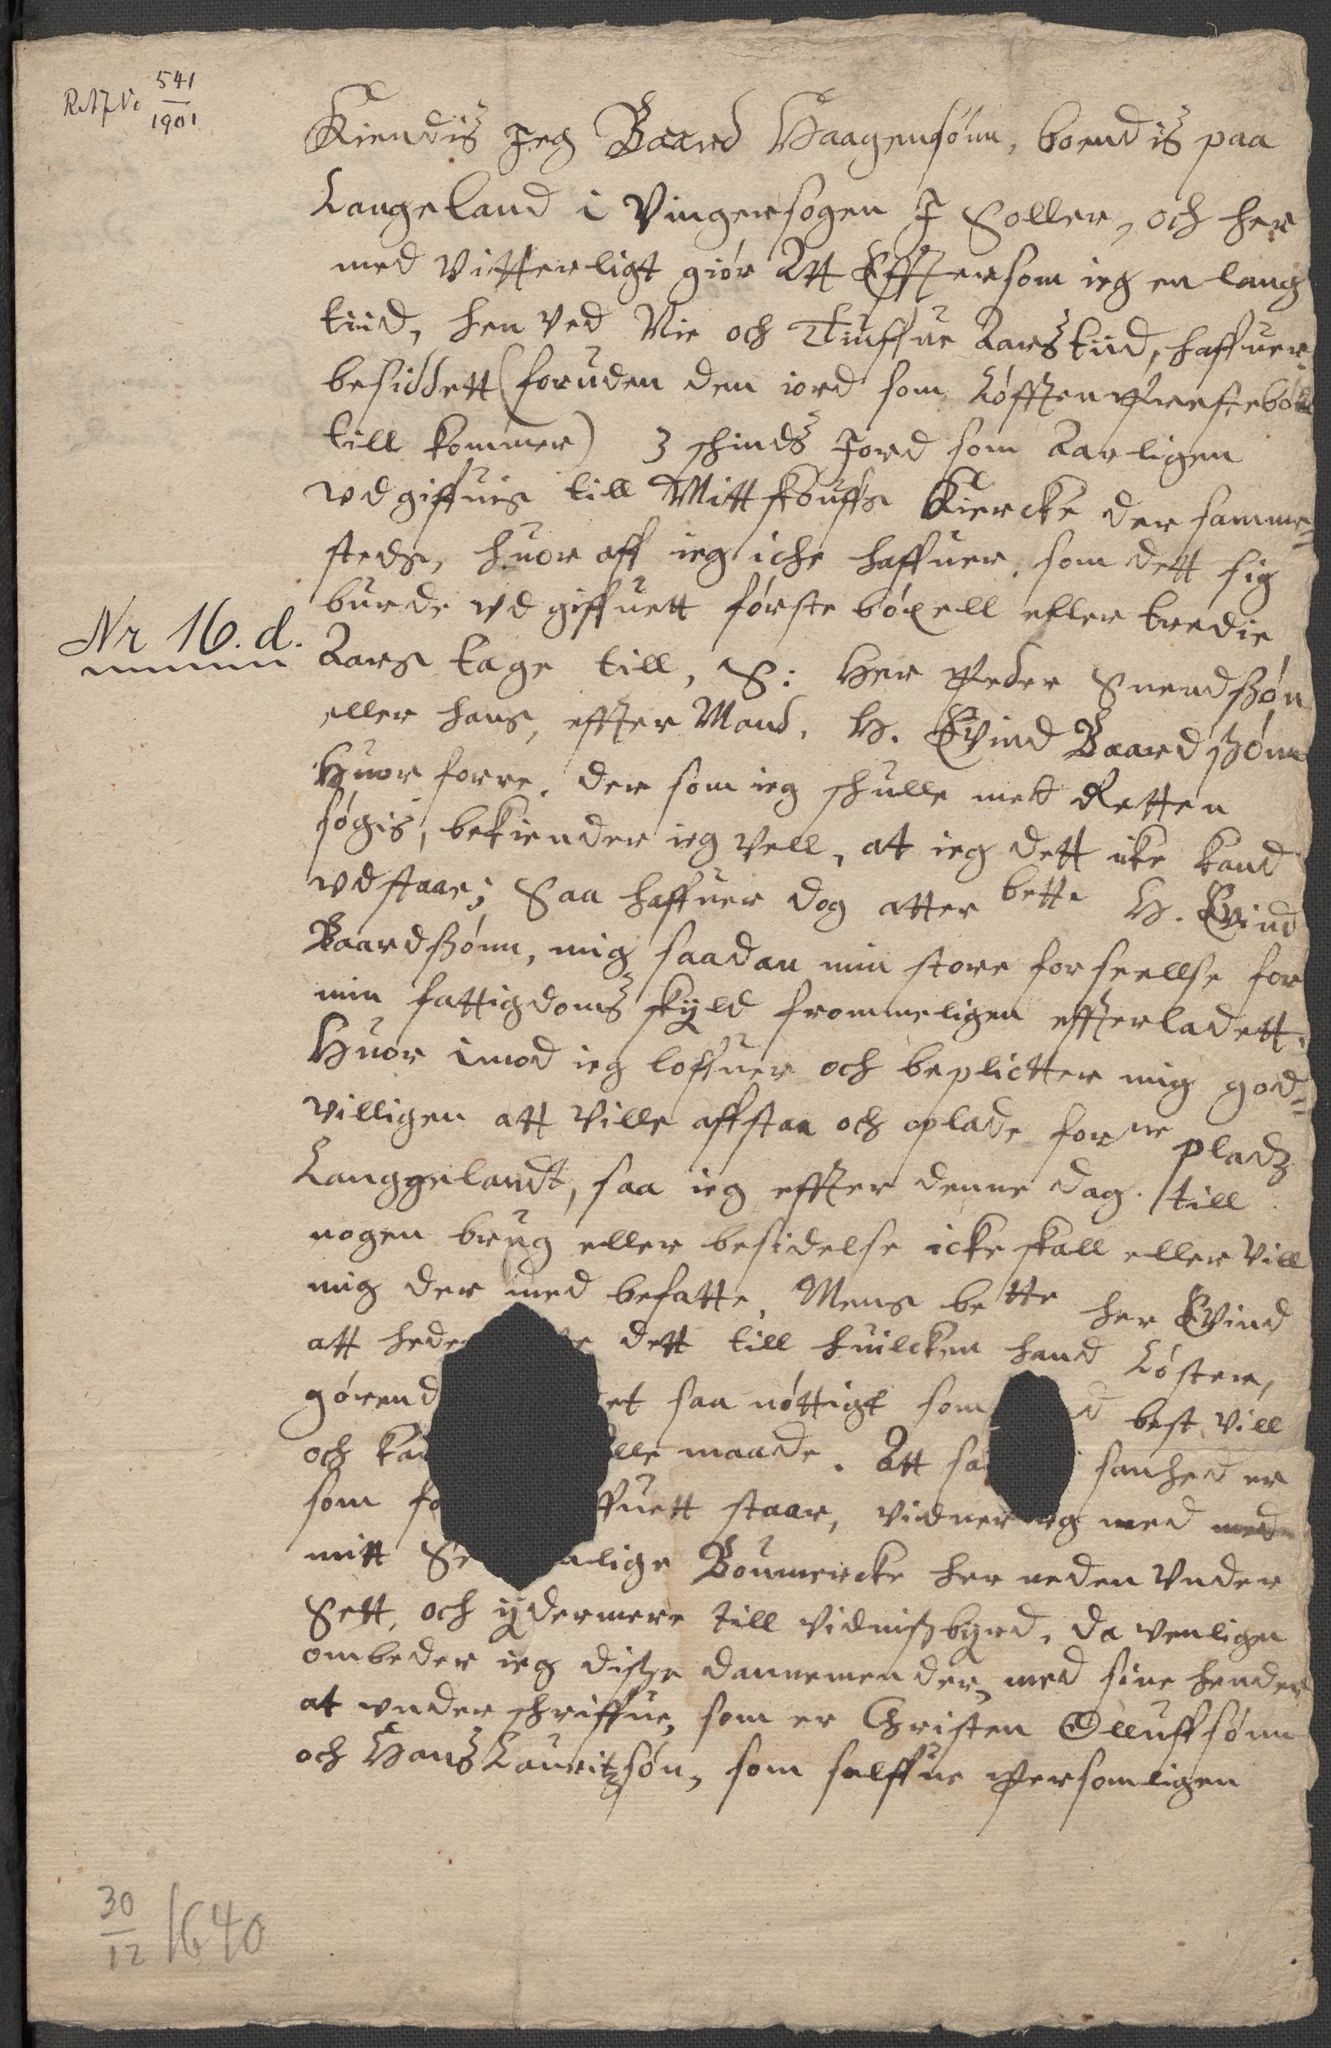 541
1901
Kiendis Jeg Baard Haagensønn, boendis paa
Langeland i Vingersogen J Soller, och her
med Vitterligt giør Att Efftersom ieg en lang
tiid, hen ved Nie och Tiuffue Aars tiid, haffuer
besiddett (foruden den iord som Løfften Prestebol
till kommer) 3 schinds Jord som Aarligen
vdgiffuis till Mittskouffs Kiercke der samme-
steds, huor aff ieg iche haffuer, som dett sig
burde vdgiffuett første bøxell eller tredie
Nr 16. d.
Aars tage till, S: Her Peder Suendsøn
eller hans, effter Mand, H. Evind Baardsønn
Huor forre, der som ieg schulle mett Retten
søgis, bekiender ieg vell, at ieg dett icke kand
vdstaa; Saa haffuer dog atter bette H. Evind
Baardsønn, mig saadan min store forseellse for
min fattigdoms skyld frommeligen effterladett.
Huor imod ieg loffuer och beplicter mig god-
villigen att Ville affstaa och oplade forne pladz
Langgelandt, saa ieg effter denne dag till
nogen brug eller besidelse icke skall eller Vill
mig der med befatte, Mens bette her Evind
att hede dett till huilcken hand Løster,
gørend et saa nøttigt som d best vill
och ka lle maade. Att sa sanhed er
som fo ffuett staar, vidner ieg med
mitt Se lige Boumercke her neden Vnder
Sett, och ydermere till Vidnisbyrd, da venligen
ombeder ieg disse dannemender, med sine hender
at vnderschriffue, som er Christen Olluffsønn
och Hans Lauritzsøn, som selffue Personligen
30
12 1640